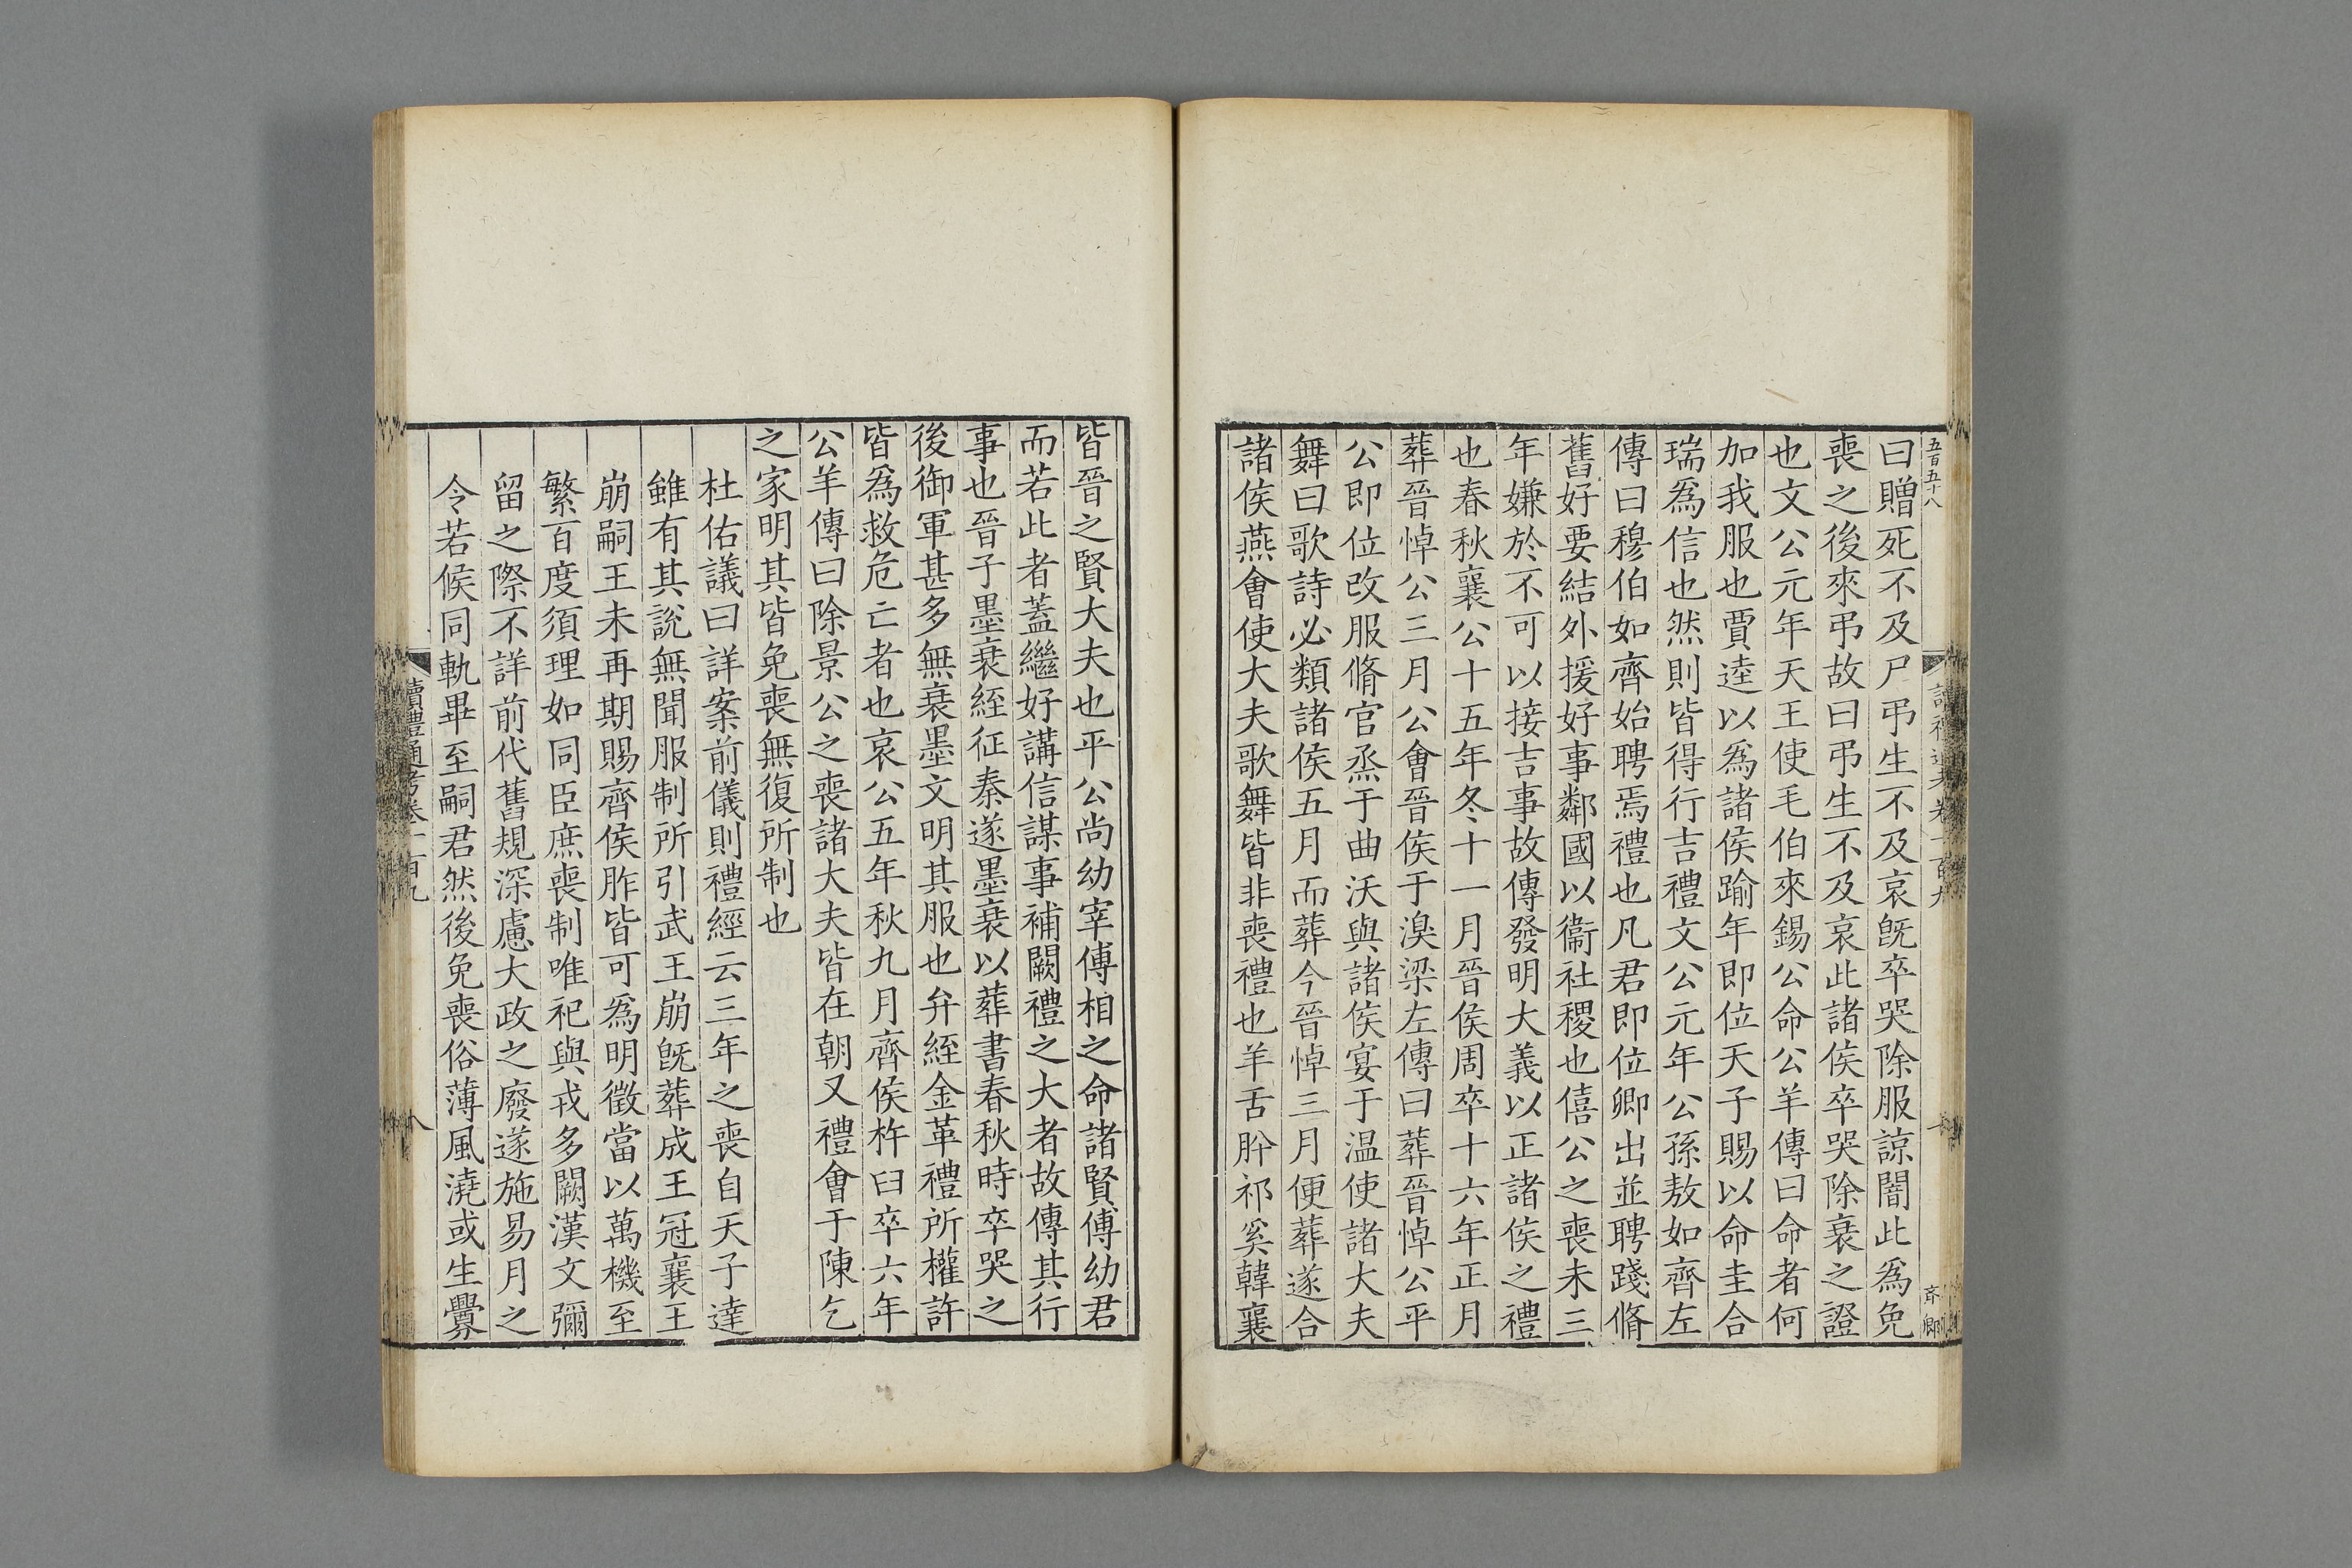 五百五十八
曰贈死不及尸弔生不及哀旣卒哭除服諒闇此爲免
喪之後來弔故曰弔生不及哀此諸侯卒哭除衰之證
也文公元年天王使毛伯來錫公命公羊傳曰命者何
加我服也賈逵以爲諸侯踰年即位天子賜以命圭合
瑞爲信也然則皆得行吉禮文公元年公孫敖如齊左
傳曰穆伯如齊始聘焉禮也凡君即位卿出並聘踐脩
舊好要結外援好事鄰國以衞社稷也僖公之喪未三
年嫌於不可以接吉事故傳發明大義以正諸侯之禮
也春秋襄公十五年冬十一月晉侯周卒十六年正月
葬晉悼公三月公會晉侯于溴梁左傳曰葬晉悼公平
公即位改服脩官烝于曲沃與諸侯宴于温使諸大夫
舞曰歌詩必類諸侯五月而葬今晉悼三月便葬遂合
諸侯燕會使大夫歌舞皆非喪禮也羊舌肸祁奚韓襄
皆晉之賢大夫也平公尚幼宰傅相之命諸賢傅幼君
而若此者蓋繼好講信謀事補闕禮之大者故傳其行
事也晉子墨衰絰征秦遂墨衰以葬書春秋時卒哭之
後御軍甚多無衰墨文明其服也弁絰金革禮所權許
皆爲救危亡者也哀公五年秋九月齊侯杵臼卒六年
公羊傳曰除景公之喪諸大夫皆在朝又禮會于陳乞
之家明其皆免喪無復所制也
杜佑議曰詳案前儀則禮經云三年之喪自天子達
雖有其說無聞服制所引武王崩旣葬成王冠襄王
崩嗣王未再期賜齊侯胙皆可爲明徵當以萬機至
繁百度須理如同臣庶喪制唯祀與戎多闕漢文彌
留之際不詳前代舊規深慮大政之廢遂施易月之
令若候同軌畢至嗣君然後免喪俗薄風澆或生釁
讀禮通考卷一百九
八